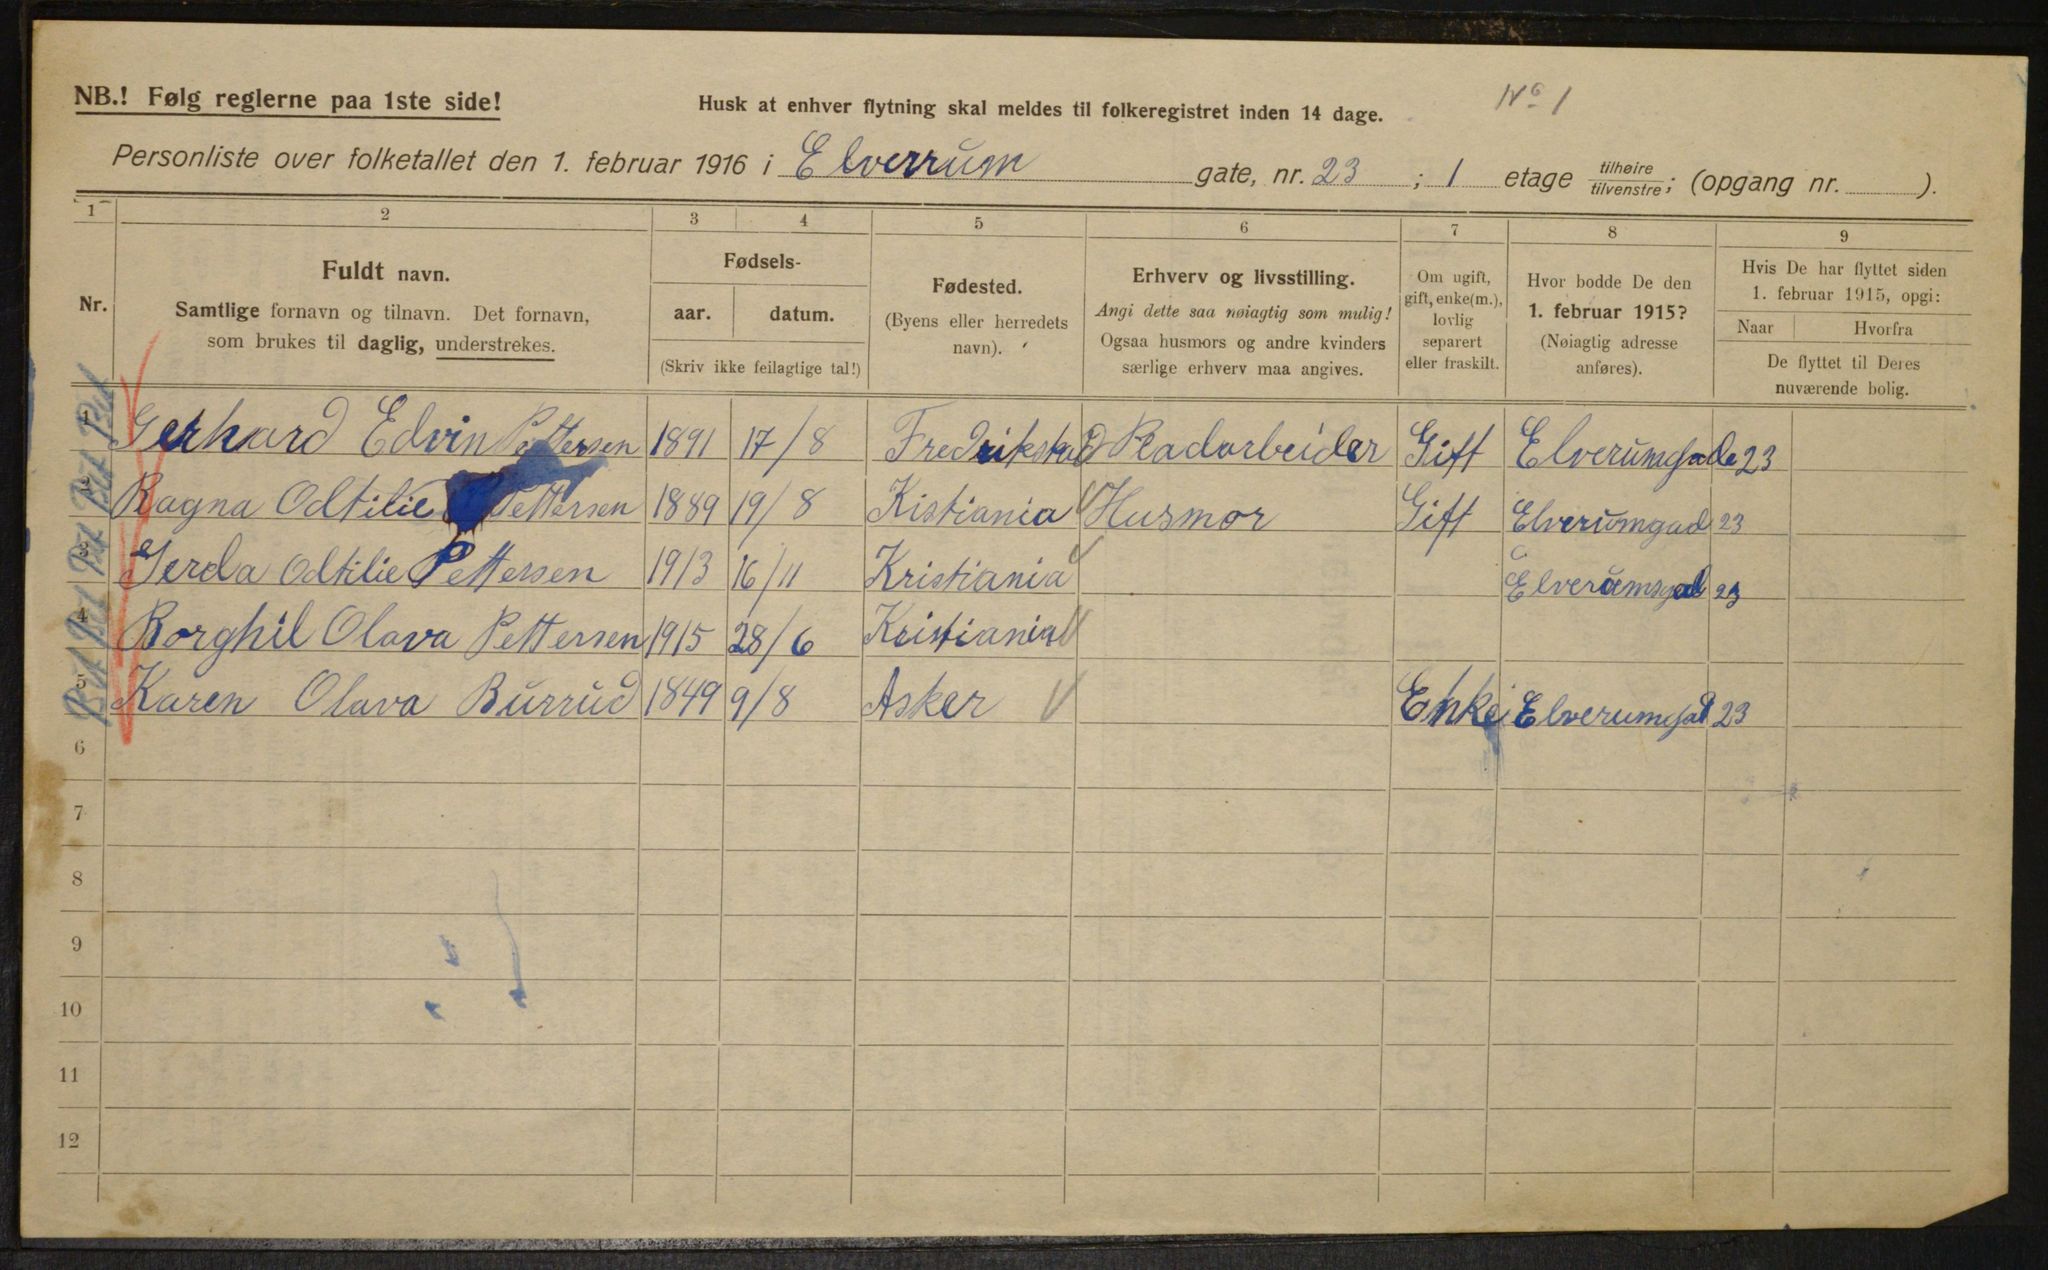 NB.! Følg reglerne paa 1ste side!
Husk at enhver flytning skal meldes til folkeregistret inden 14 dage.
No 1
Personliste over folketallet den 1. februar 1916 i Elverrum gate, nr. 23 ; 1 etage tilhøire/tilvenstre; (opgang nr. ).
1 2 3 4 5 6 7 8 9
Nr.
Fuldt navn.
Samtlige fornavn og tilnavn. Det fornavn,
som brukes til daglig, understrekes.
Fødsels-
aar. datum.
(Skriv ikke feilagtige tal!)
Fødested.
(Byens eller herredets
navn).
Erhverv og livsstilling.
Angi dette saa nøiagtig som mulig!
Ogsaa husmors og andre kvinders
særlige erhverv maa angives.
Om ugift,
gift, enke(m.),
lovlig
separert
eller fraskilt.
Hvor bodde De den
1. februar 1915?
(Nøiagtig adresse
anføres).
Hvis De har flyttet siden
1. februar 1915, opgi:
Naar Hvorfra
De flyttet til Deres
nuværende bolig.
1 Gerhard Edvin Pettersen 1891 17/8 Fredrikstad Pladarbeider Gift Elverumgade 23
2 Ragna Odtilie Pettersen 1889 19/8 Kistiania Husmor Gift Elverumgad 23
3 Gerda Odtilie Pettersen 1913 16/11 Kristiania Elverumsgad 23
4 Borghil Olava Pettersen 1915 28/6 Kristiania
5 Karen Olava Burrud 1849 9/8 Asker Enke Elverumgad 23
6
7
8
9
10
11
12